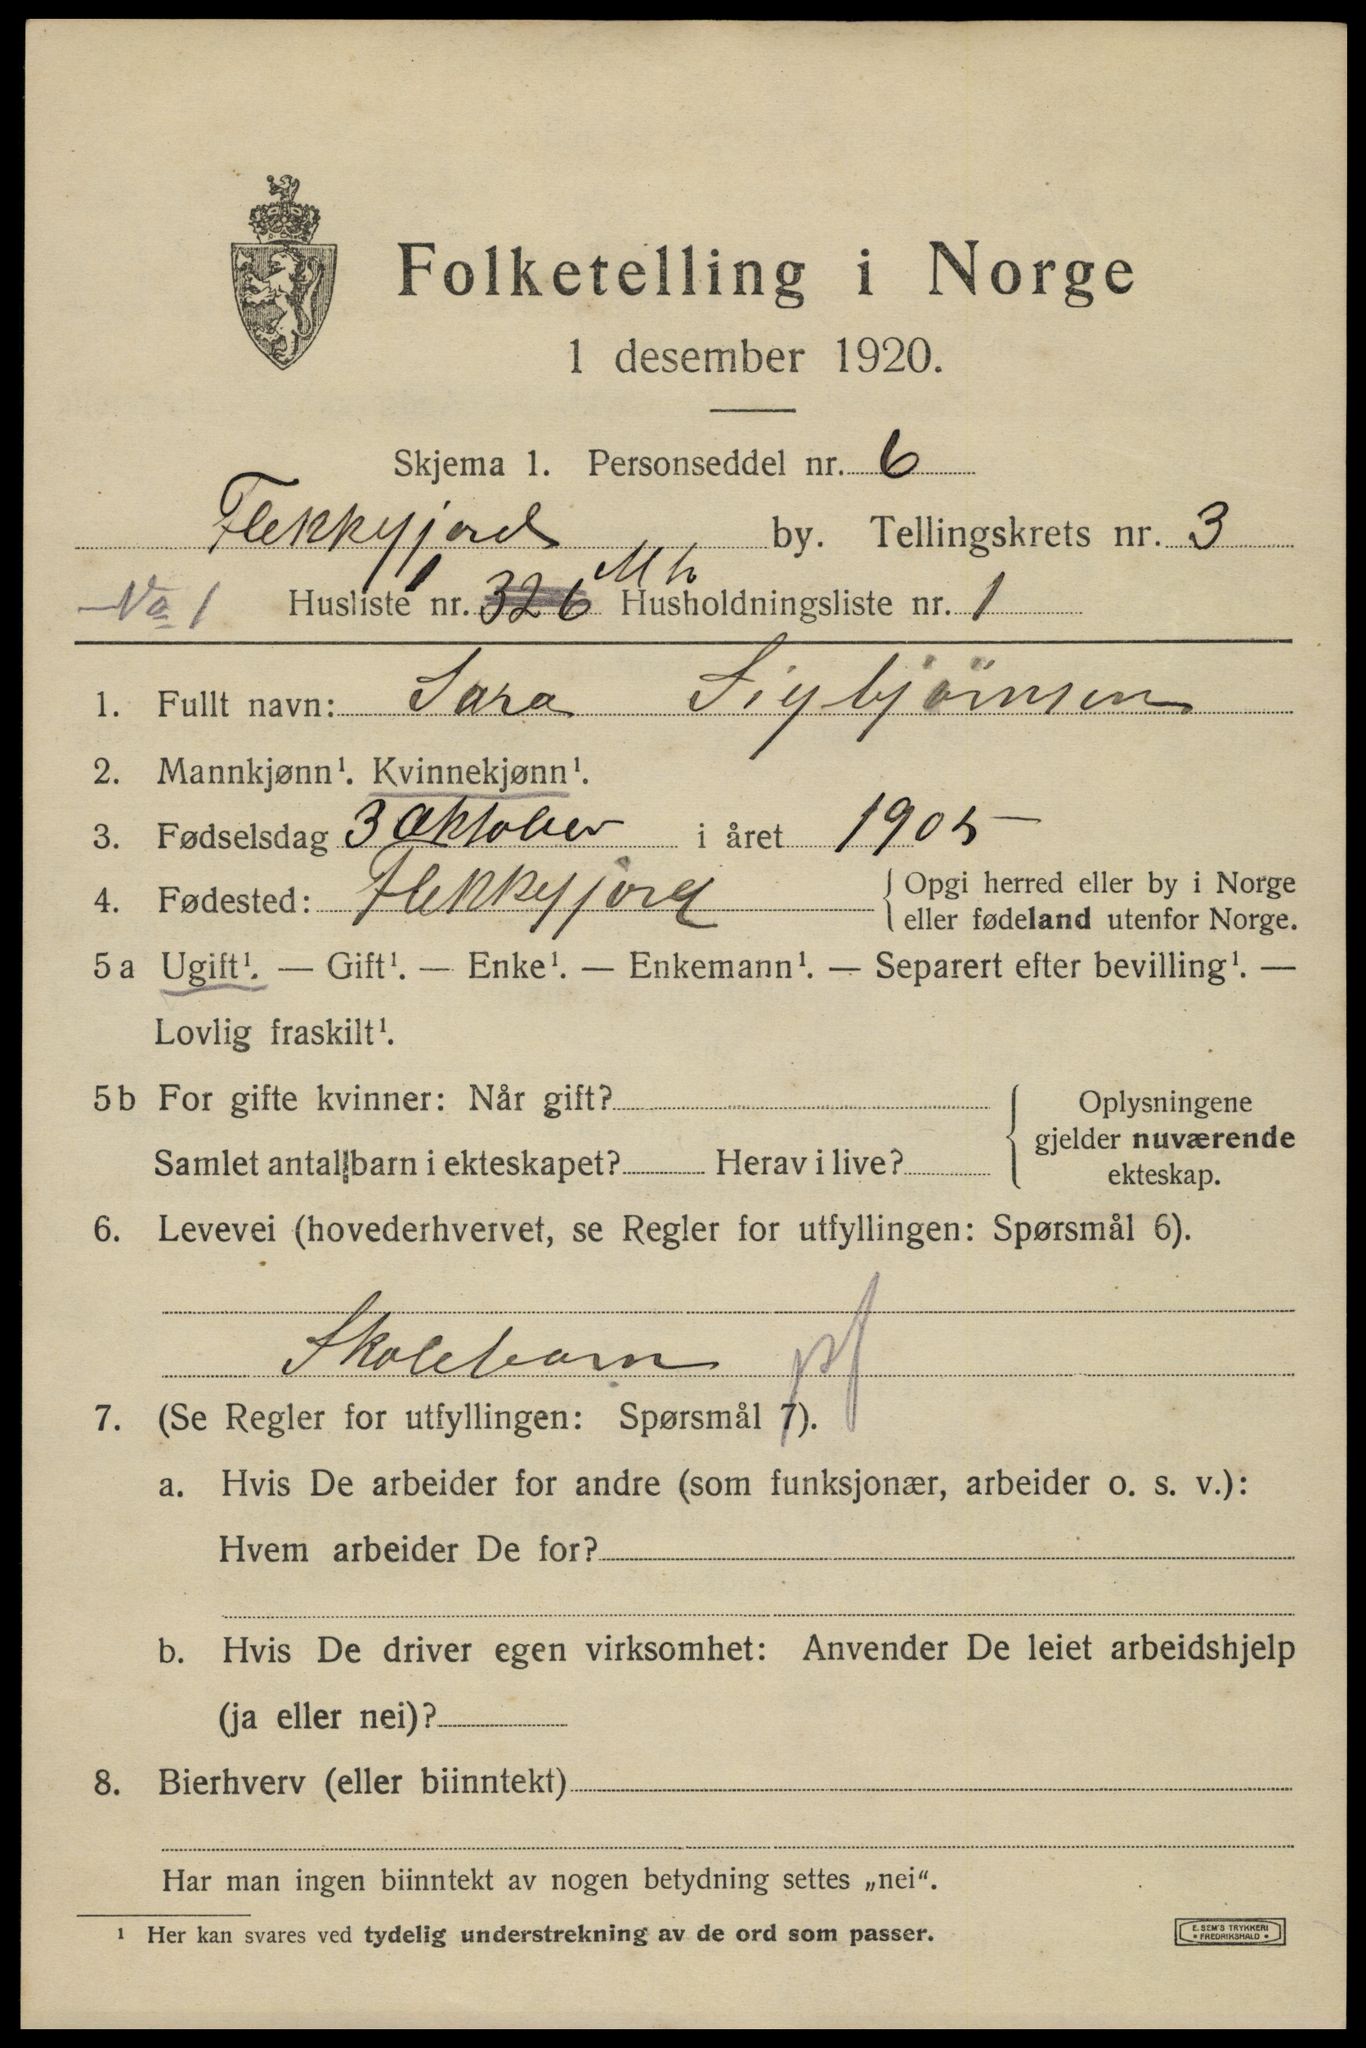 Folketelling i Norge
1 desember 1920.
Skjema 1. Personseddel nr. 6
Flekkefjord by. Tellingskrets nr. 3
No 1 Husliste nr. 326 1 Husholdningsliste nr. 1
1. Fullt navn: Sara Sigbjörnsen
2. Mannkjønn¹. Kvinnekjønn¹.
3. Fødselsdag 3 Oktober i året 1905
4. Fødested: Flekkefjord { Opgi herred eller by i Norge
eller fødeland utenfor Norge.
5 a Ugift¹. — Gift¹. — Enke¹. — Enkemann¹. — Separert efter bevilling¹. —
Lovlig fraskilt¹.
5 b For gifte kvinner: Når gift? { Oplysningene
gjelder nuværende
Samlet antal barn i ekteskapet? Herav i live?
ekteskap.
6. Levevei (hovederhvervet, se Regler for utfyllingen: Spørsmål 6).
Skolebarn pf
7. (Se Regler for utfyllingen: Spørsmål 7).
a. Hvis De arbeider for andre (som funksjonær, arbeider o. s. v.):
Hvem arbeider De for?
b. Hvis De driver egen virksomhet: Anvender De leiet arbeidshjelp
(ja eller nei)?
8. Bierhverv (eller biinntekt)
Har man ingen biinntekt av nogen betydning settes „nei“.
¹ Her kan svares ved tydelig understrekning av de ord som passer.
E. SEM'S TRYKKERI
• FREDRIKSHALD •